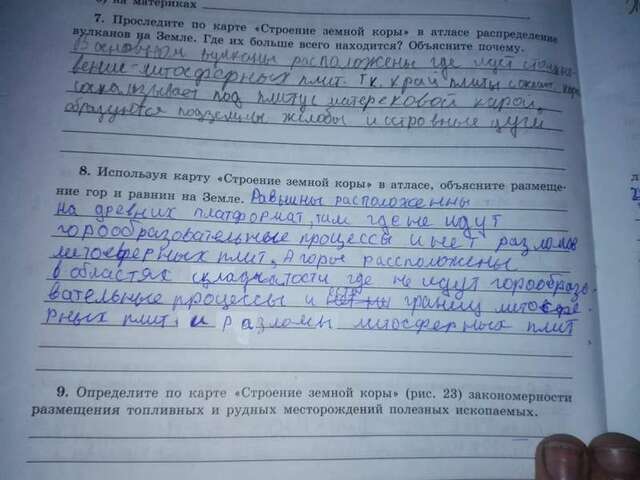 б) на материках
7. Проследите по карте «Строение земной коры» в атласе распределение
вулканов на Земле. Где их больше всего находится? Объясните почему.
В основном вулканы расположены где идут столкно-
вение литосферных плит. Т.к. край плиты с океан. корой
соскальзывает под плитус материковой карой,
образуются подземны желобы и островные дуги
8. Используя карту «Строение земной коры» в атласе, объясните размеще-
ние гор и равнин на Земле. Равнины расположенны
на древних платформат, там где не идут
горообразовательные процессы и нет разломов
литосферных плит, А горы рассположены
в областях складчатости где не идут горообразо-
вательные процессы и границ литосфе
рных плит, и разломы литосферных плит
9. Определите по карте «Строение земной коры» (рис. 23) закономерности
размещения топливных и рудных месторождений полезных ископаемых.